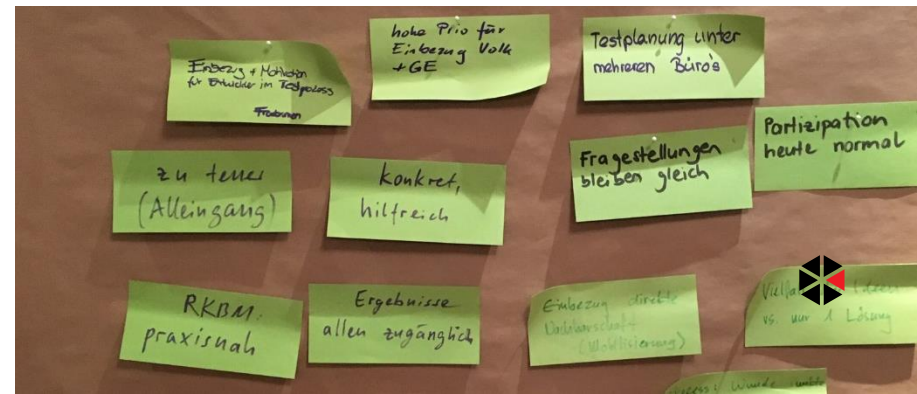 Einbezug + Motivation
für Entwickler im Testprozess
hohe Prio für
Einbezug Volk
+GE
Testplanung unter
mehreren Büro's
zu teuer
(Alleingang)
konkret,
hilfreich
Fragestellungen
bleiben gleich
Partizipation
heute normal
RKBM:
praxisnah
Ergebnisse
allen zugänglich
Einbezug direkte
Nachbarschaft
(Mobilisierung)
Ideen
vs. nur 1 Lösung